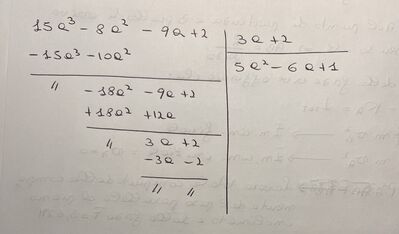 15a³ - 8a² - 9a + 2 | 3a + 2
- 15a³ - 10a² | 5a² - 6a + 1
〃 - 18a² - 9a + 2
+ 18a² + 12a
〃 3a + 2
- 3a - 2
〃 〃